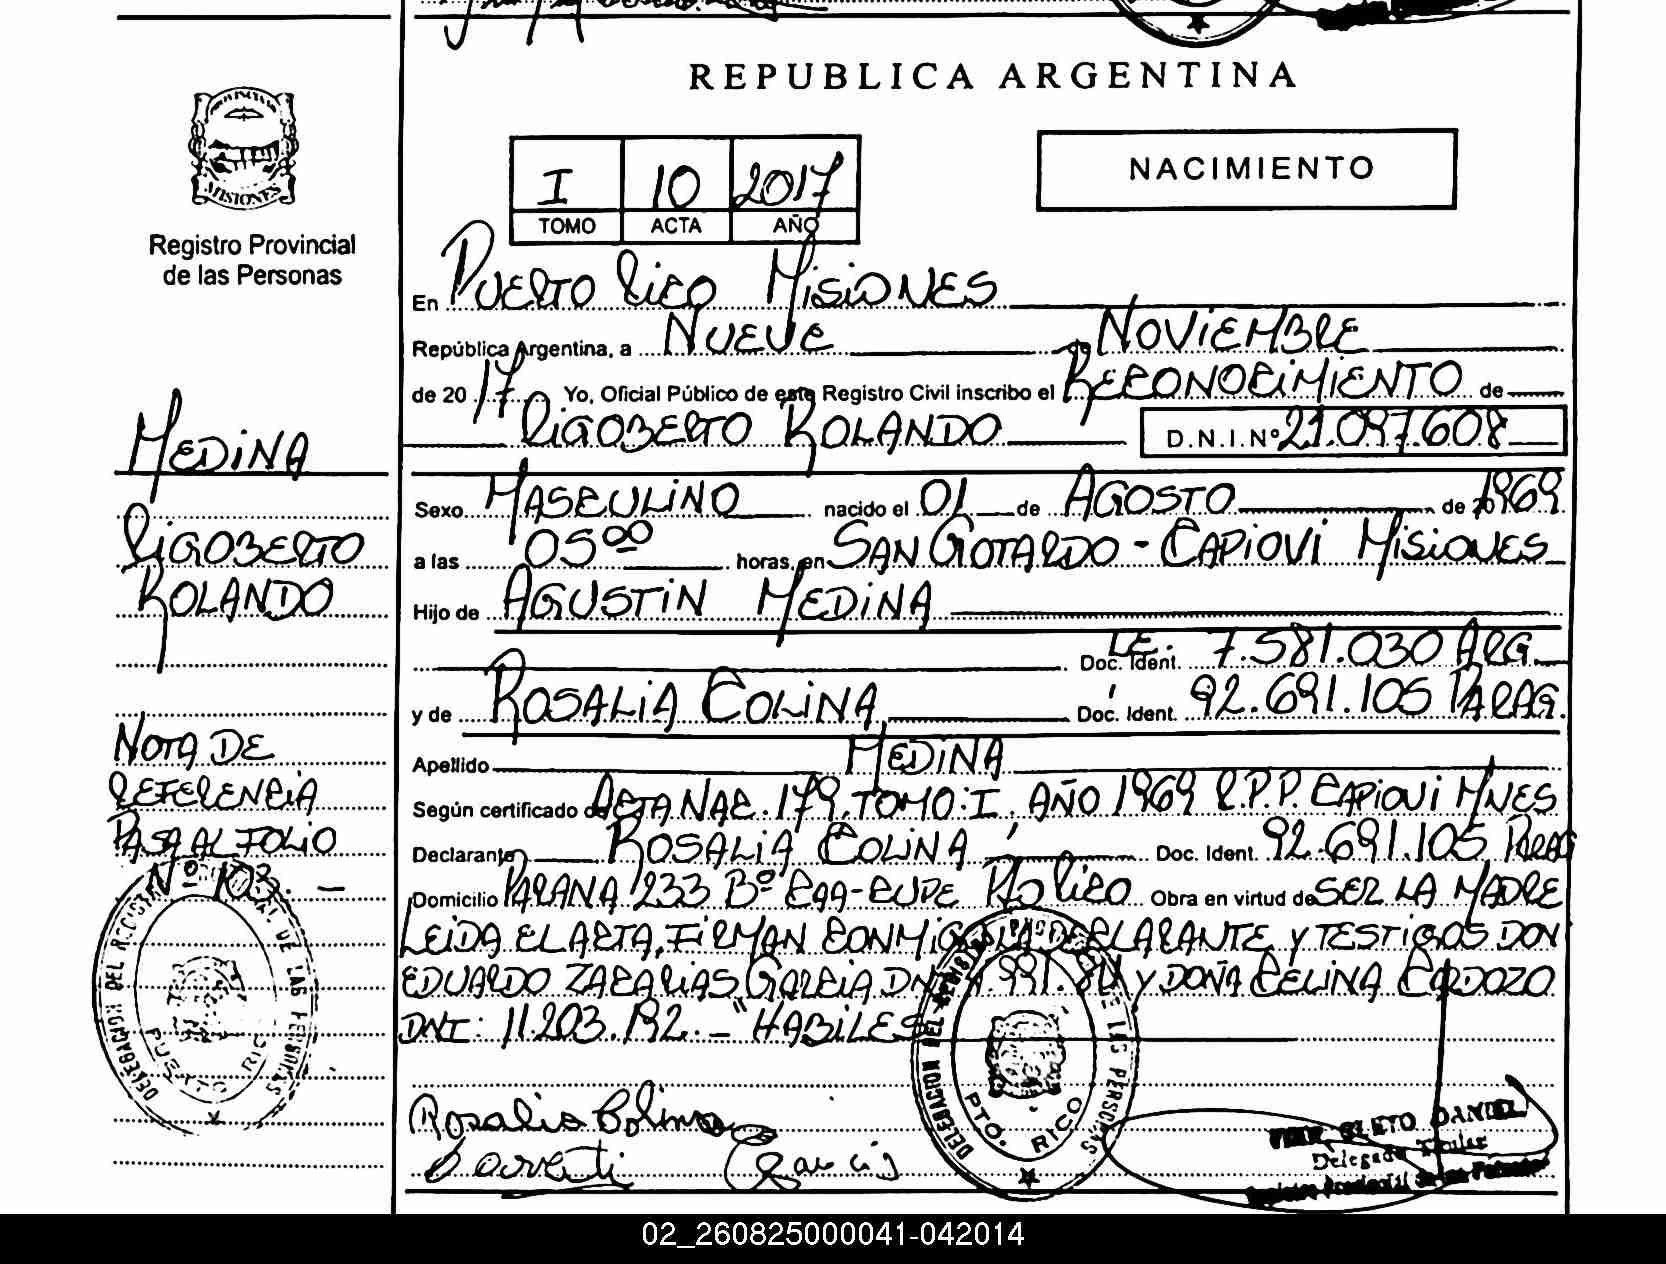 REPUBLICA ARGENTINA
PROVINCIA DE
MISIONES
Registro Provincial
de las Personas
I 10 2017
TOMO ACTA AÑO
NACIMIENTO
En PUERTO RICO MISIONES
República Argentina, a NUEVE de NOVIEMBRE
de 20 17 Yo, Oficial Público de este Registro Civil inscribo el RECONOCIMIENTO de
RIGOBERTO ROLANDO D.N.I.Nº 21.097.608
Sexo MASCULINO nacido el 01 de AGOSTO de 20 1969
a las 05 00 horas, en SAN GOTARDO - CAPIOVI MISIONES
Hijo de AGUSTIN MEDINA
Doc. Ident. LE: 7.581.030 ARG.
y de ROSALIA COLINA Doc. Ident. 92.691.105 PARAG.
Apellido MEDINA
Según certificado de ACTA NAC. 179. TOMO: I. AÑO 1969 R.P.P. CAPIOVI MNES
Declarante ROSALIA COLINA Doc. Ident. 92.691.105 PARAG
Domicilio PARANA 1233 Bº PTO RICO Obra en virtud de SER LA MADRE
LEIDA EL ACTA, FIRMAN CONMIGO LA DECLARANTE Y TESTIGOS DON
EDUARDO ZACARIAS GARCIA DNI Y DOÑA CELINA CARDOZO
DNI: 11.203.192. - "HABILES
MEDINA
RIGOBERTO
ROLANDO
NOTA DE
REFERENCIA
PASA AL FOLIO
Nº 103. -
DELEGACION DEL REGISTRO DE LAS PERSONAS
PUERTO RICO
DELEGACION DEL DE LAS PERSONAS
PTO. RICO
Rosalia Colina
Garcia
CLETO DANIEL
Delegado Titular
Registro Provincial de las Personas
02_260825000041-042014